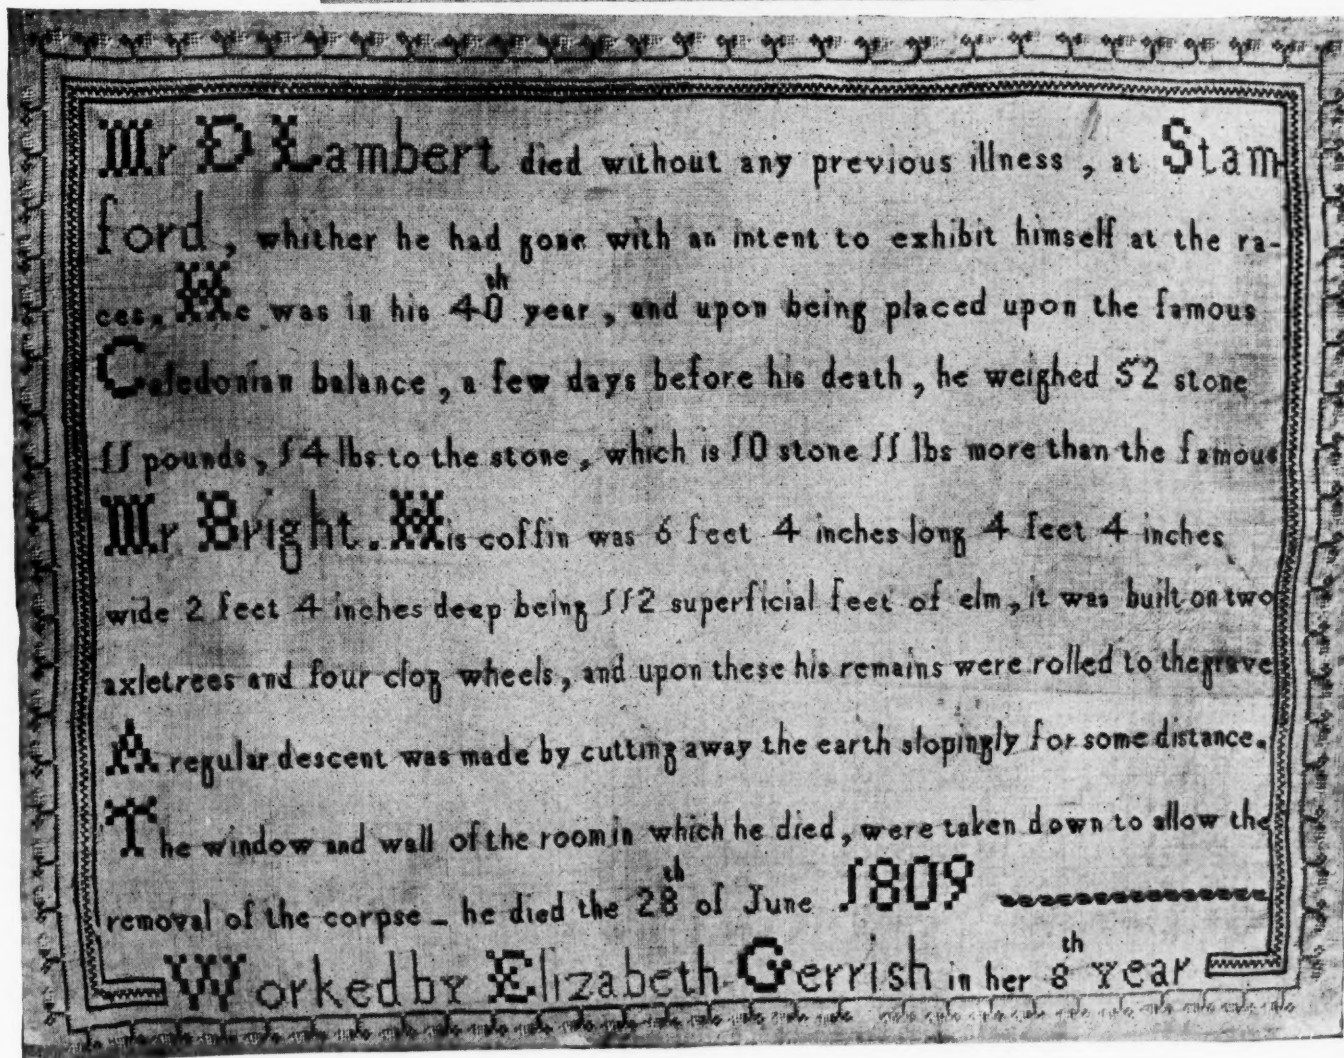 Mr D Lambert died without any previous illness, at Stam
ford, whither he had gone with an intent to exhibit himself at the ra-
ces. He was in his 40th year, and upon being placed upon the famous
Caledonian balance, a few days before his death, he weighed 52 stone
11 pounds, 14 lbs to the stone, which is 10 stone 11 lbs more than the famous
Mr Bright. His coffin was 6 feet 4 inches long 4 feet 4 inches
wide 2 feet 4 inches deep being 112 superficial feet of elm, it was built on two
axletrees and four clog wheels, and upon these his remains were rolled to the grave
A regular descent was made by cutting away the earth slopingly for some distance.
The window and wall of the room in which he died, were taken down to allow the
removal of the corpse - he died the 28th of June 1809
Worked by Elizabeth Gerrish in her 8th Year